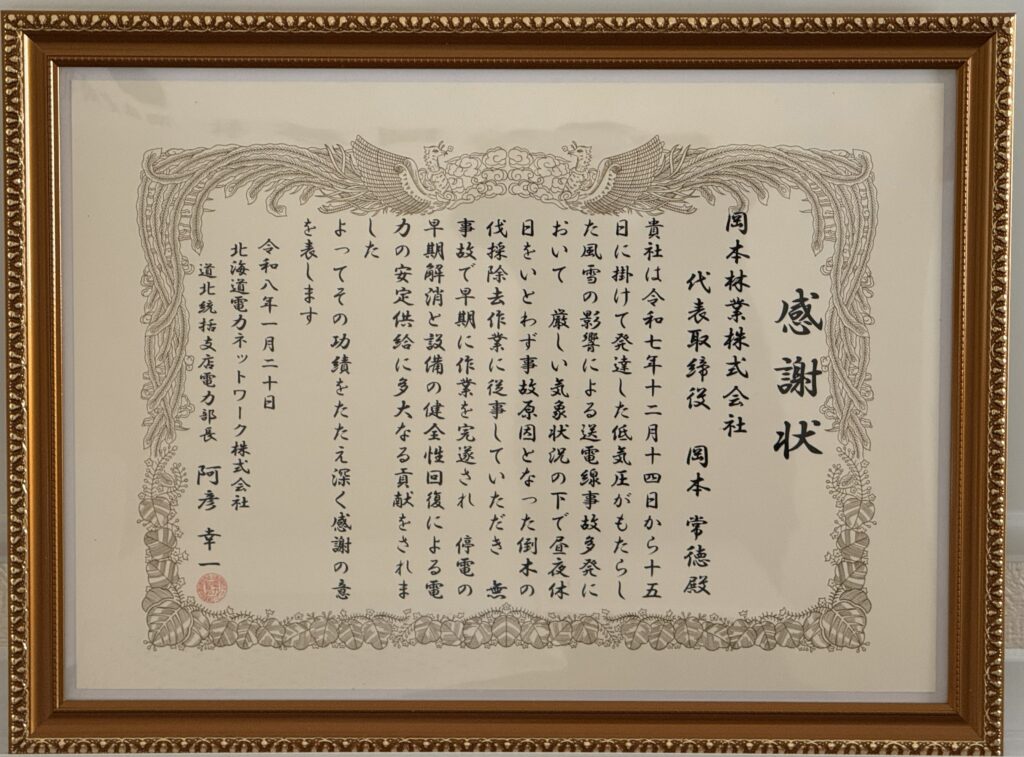 感謝状
岡本林業株式会社
代表取締役　岡本　常德殿
貴社は令和七年十二月十四日から十五
日に掛けて発達した低気圧がもたらし
た風雪の影響による送電線事故多発に
おいて　厳しい気象状況の下で昼夜休
日をいとわず事故原因となった倒木の
伐採除去作業に従事していただき　無
事故で早期に作業を完遂され　停電の
早期解消と設備の健全性回復による電
力の安定供給に多大なる貢献をされま
した
よってその功績をたたえ深く感謝の意
を表します
令和八年一月二十日
北海道電力ネットワーク株式会社
道北統括支店電力部長　阿彦　幸一